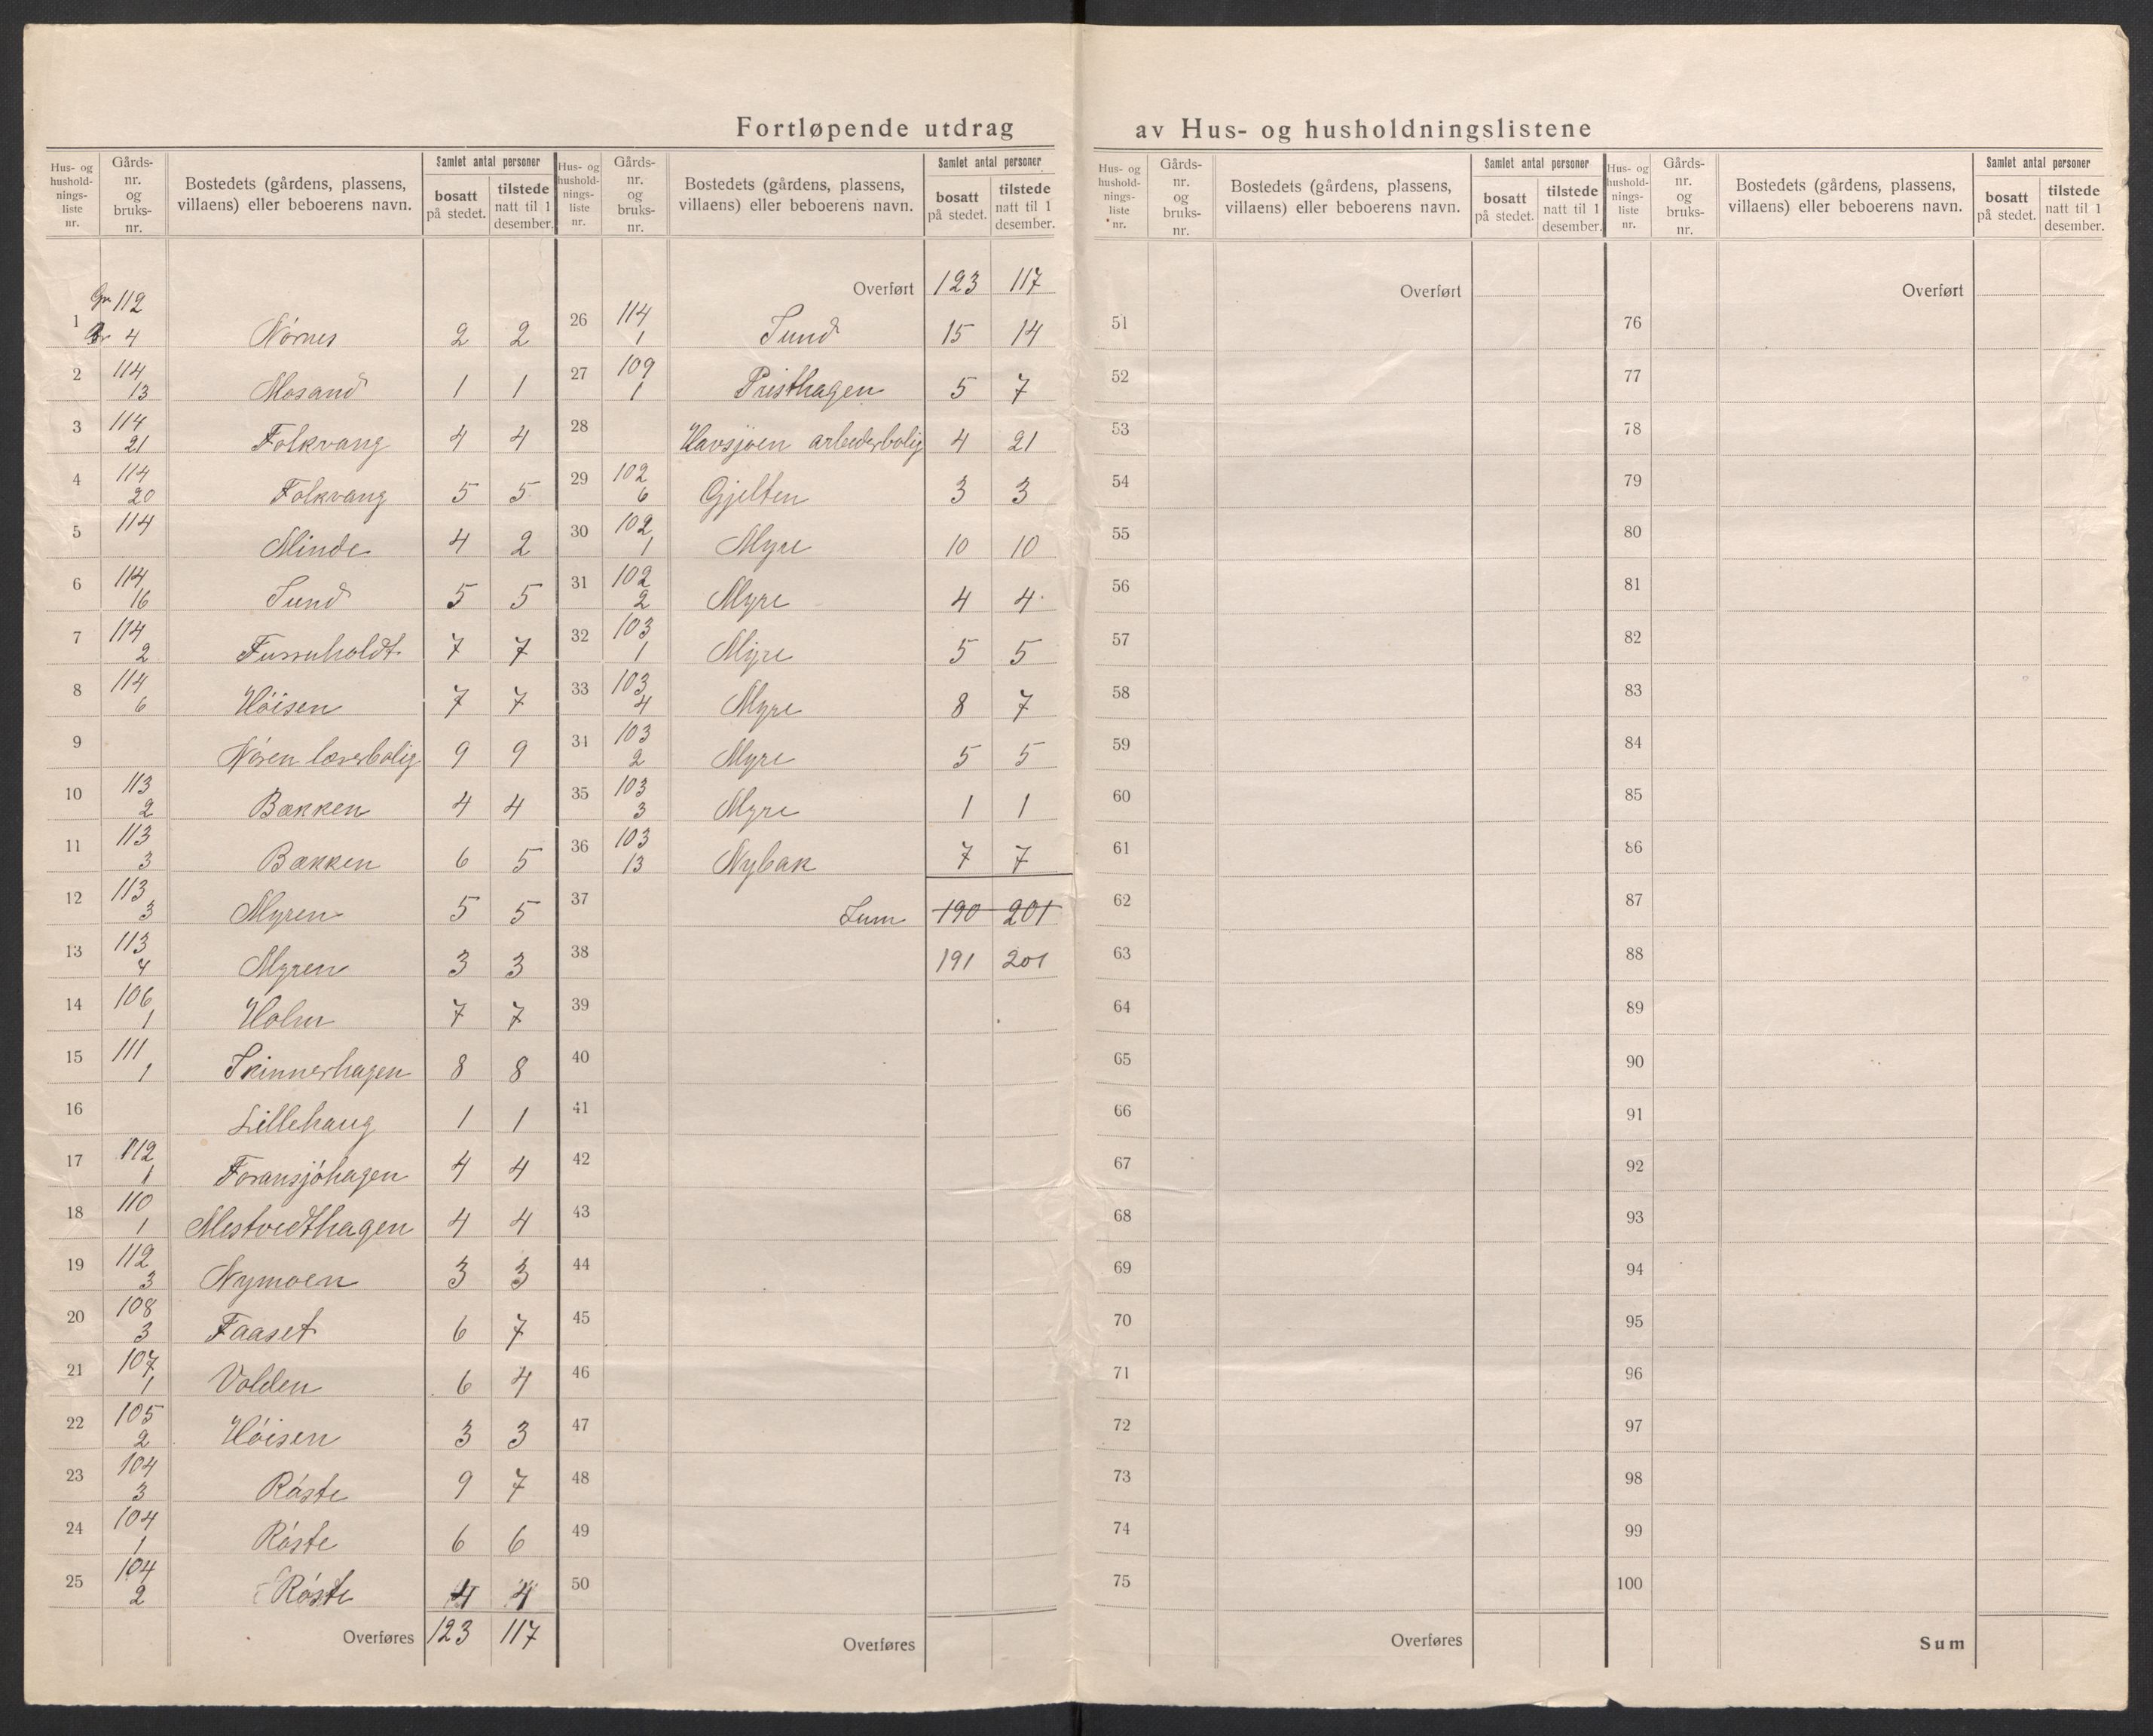 Fortløpende utdrag av Hus- og husholdningslistene
Hus- og hushold-nings-liste nr. | Gårds-nr. og bruks-nr. | Bostedets (gårdens, plassens, villaens) eller beboerens navn. | Samlet antal personer | bosatt på stedet. | tilstede natt til 1 desember.
1 Gn 112 Br 4 Nórnes 2 2
2 114 13 Mosand 1 1
3 114 21 Folkvang 4 4
4 114 20 Folkvang 5 5
5 114 Minde 4 2
6 114 16 Sund 5 5
7 114 2 Furruholdt 7 7
8 114 6 Hóisen 7 7
9 Nóren lærerbolig 9 9
10 113 2 Bækken 4 4
11 113 3 Bækken 6 5
12 113 3 Myren 5 5
13 113 4 Myren 3 3
14 106 1 Holm 7 7
15 111 1 Skinnerhagen 8 8
16 Lillehaug 1 1
17 112 1 Foransjóhagen 4 4
18 110 1 Mestvedthagen 4 4
19 112 3 Nymoen 3 3
20 108 3 Faaset 6 7
21 107 1 Volden 6 4
22 105 2 Hóisen 3 3
23 104 3 Róste 9 7
24 104 1 Róste 6 6
25 104 2 Róste 4 4
Overføres 123 117
Hus- og hushold-nings-liste nr. | Gårds-nr. og bruks-nr. | Bostedets (gårdens, plassens, villaens) eller beboerens navn. | Samlet antal personer | bosatt på stedet. | tilstede natt til 1 desember.
Overført 123 117
26 114 1 Sund 15 14
27 109 1 Pristhagen 5 7
28 Havsjoen arbederbolig 4 21
29 102 6 Gjelten 3 3
30 102 1 Myre 10 10
31 102 2 Myre 4 4
32 103 1 Myre 5 5
33 103 4 Myre 8 7
34 103 2 Myre 5 5
35 103 3 Myre 1 1
36 103 13 Nybak 7 7
37 Sum 190 201
38 191 201
39
40
41
42
43
44
45
46
47
48
49
50
Overføres
Hus- og hushold-nings-liste nr. | Gårds-nr. og bruks-nr. | Bostedets (gårdens, plassens, villaens) eller beboerens navn. | Samlet antal personer | bosatt på stedet. | tilstede natt til 1 desember.
Overført
51
52
53
54
55
56
57
58
59
60
61
62
63
64
65
66
67
68
69
70
71
72
73
74
75
Overføres
Hus- og hushold-nings-liste nr. | Gårds-nr. og bruks-nr. | Bostedets (gårdens, plassens, villaens) eller beboerens navn. | Samlet antal personer | bosatt på stedet. | tilstede natt til 1 desember.
Overført
76
77
78
79
80
81
82
83
84
85
86
87
88
89
90
91
92
93
94
95
96
97
98
99
100
Sum